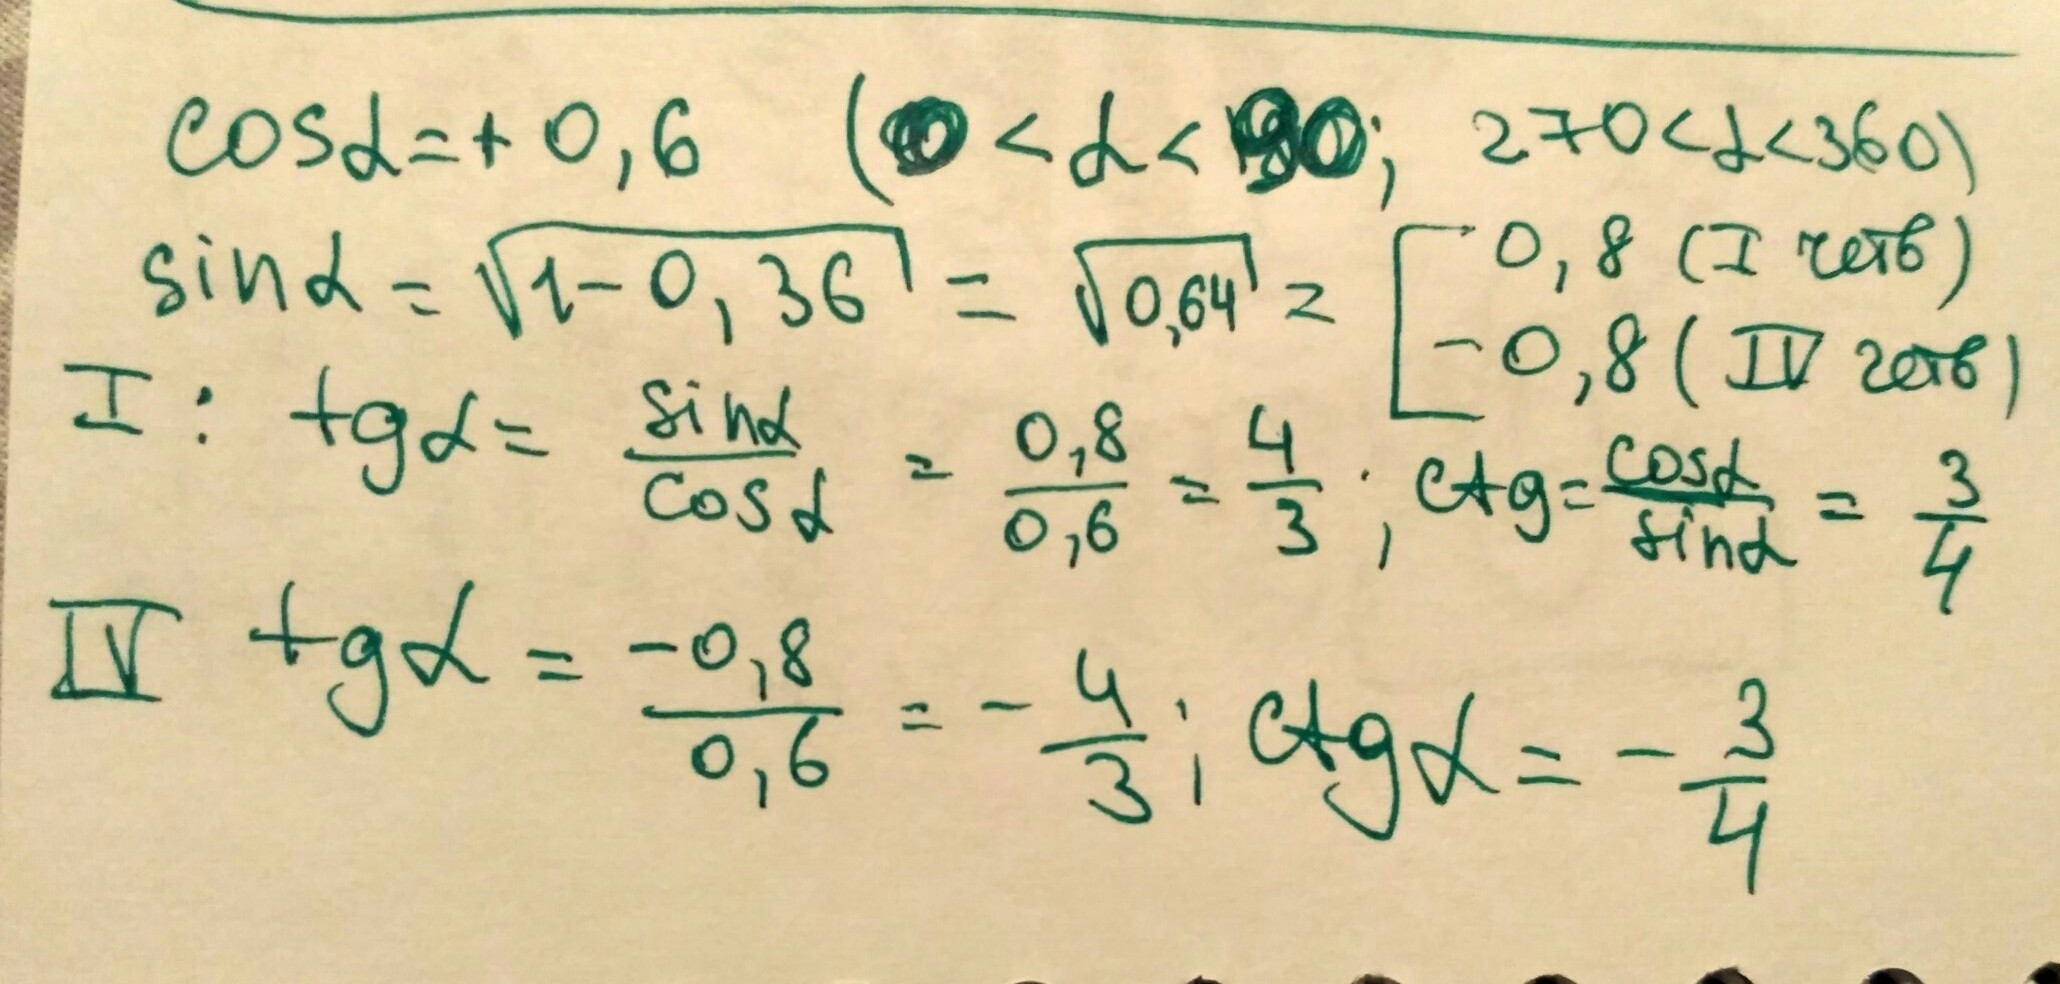 cosα=+0,6 (0<α<90; 270<α<360)
sinα = √1-0,36 = √0,64 = [ 0,8 (I четв)
-0,8 (IV четв)
I: tgα = sinα/cosα = 0,8/0,6 = 4/3; ctg = cosα/sinα = 3/4
IV tgα = -0,8/0,6 = -4/3; ctgα = -3/4